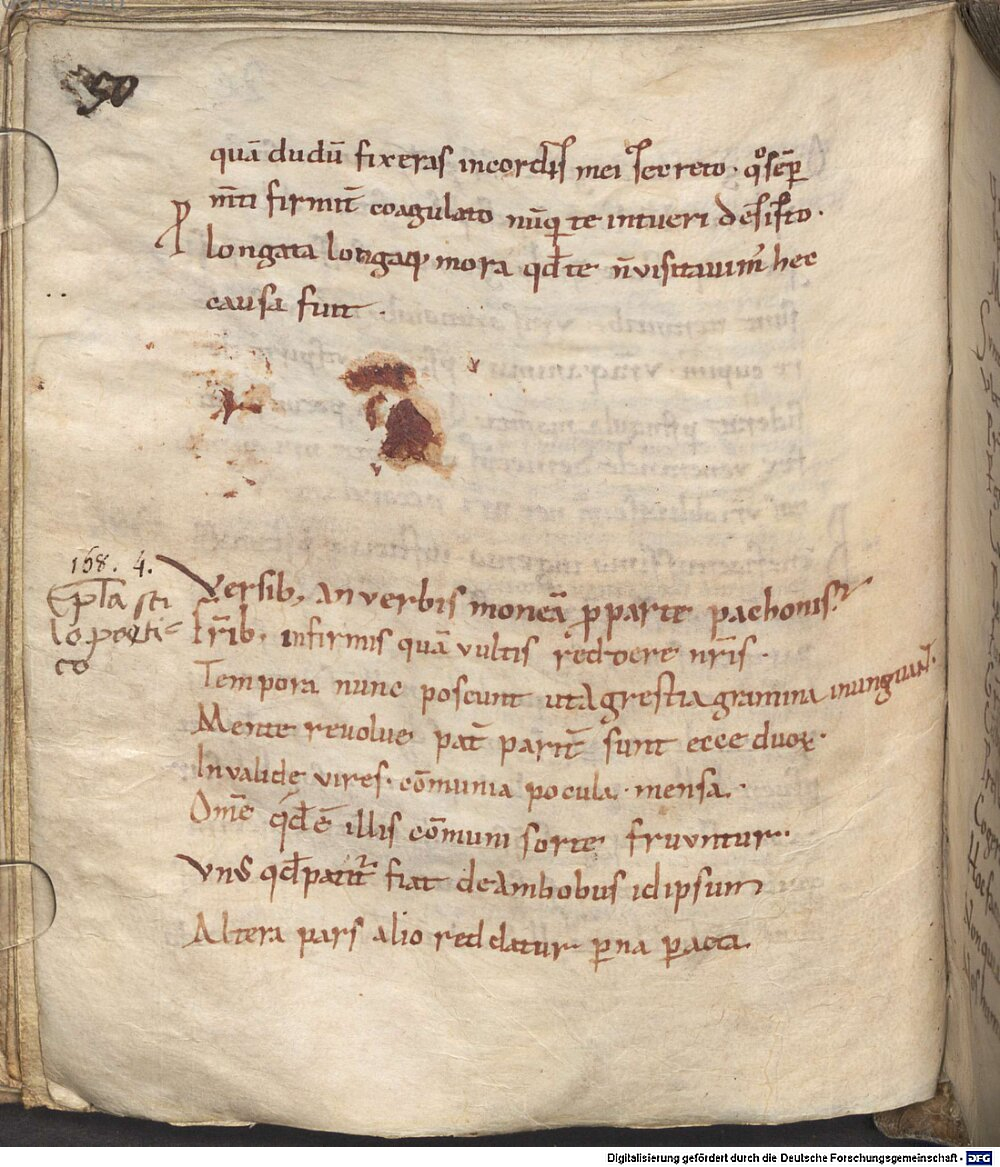 50
quā dudū fixeras incordis mei secreto. qͦ sēp
m̄ti firmit̄ coagulato nūq̄ te intueri desisto.
P longata longaq; mora qd̄ te n̄ visitauim̄ hec
causa fuit.
168. 4.
Ep̄la sti
lo poeti=
co
Versib; an verbis moneā p parte pachonis
Fr̄ib; infirmis quā vultis reddere nr̄is.
Tempora nunc poscunt ut agrestia gramina inunguant.
Mente reuolue pat̄ parit̄ sunt ecce duoꝝ.
Inualidę vires. cōmunia pocula. mensa.
Om̄e qd̄ ē illis cōmuni sorte fruuntur.
Vn᷒ qd̄ patit᷑ fiat de ambobus id ipsum
Altera pars alio reddatur p̄na pacta.
Digitalisierung gefördert durch die Deutsche Forschungsgemeinschaft - DFG